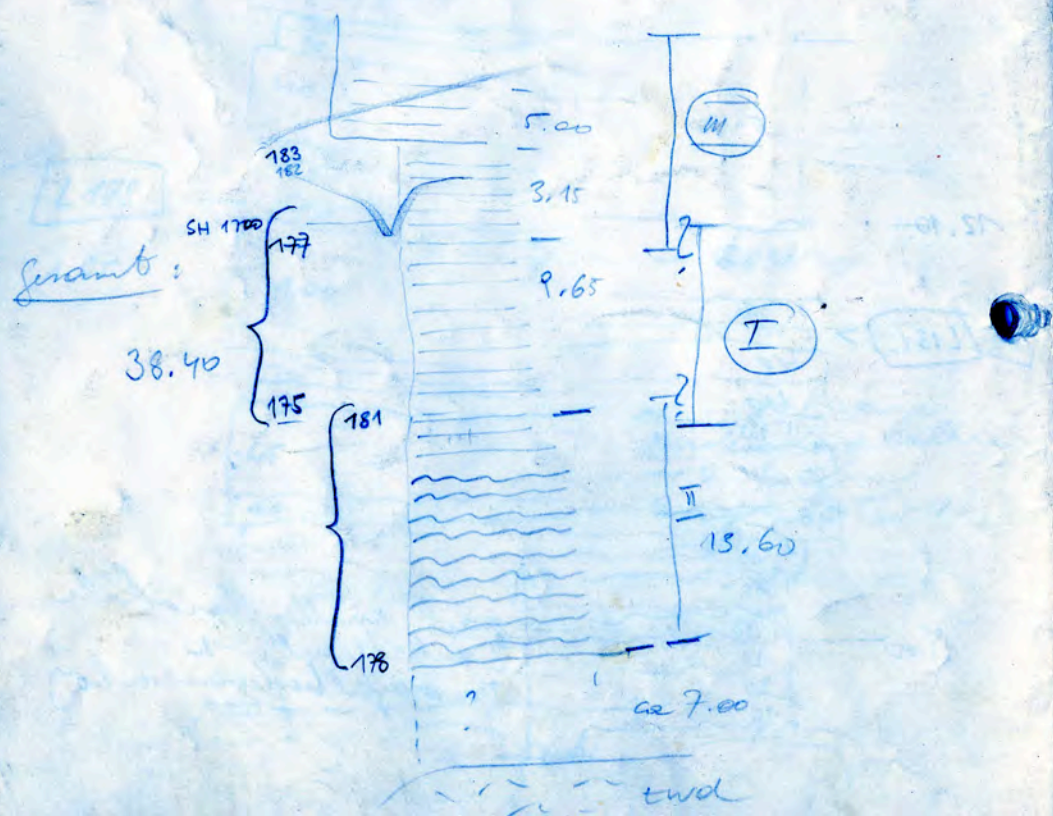 5.00
III
183
182
3.15
SH 1700
177
?
Gesamt:
9.65
I
38.40
175
181
?
II
13.60
178
?
ca 7.00
twd